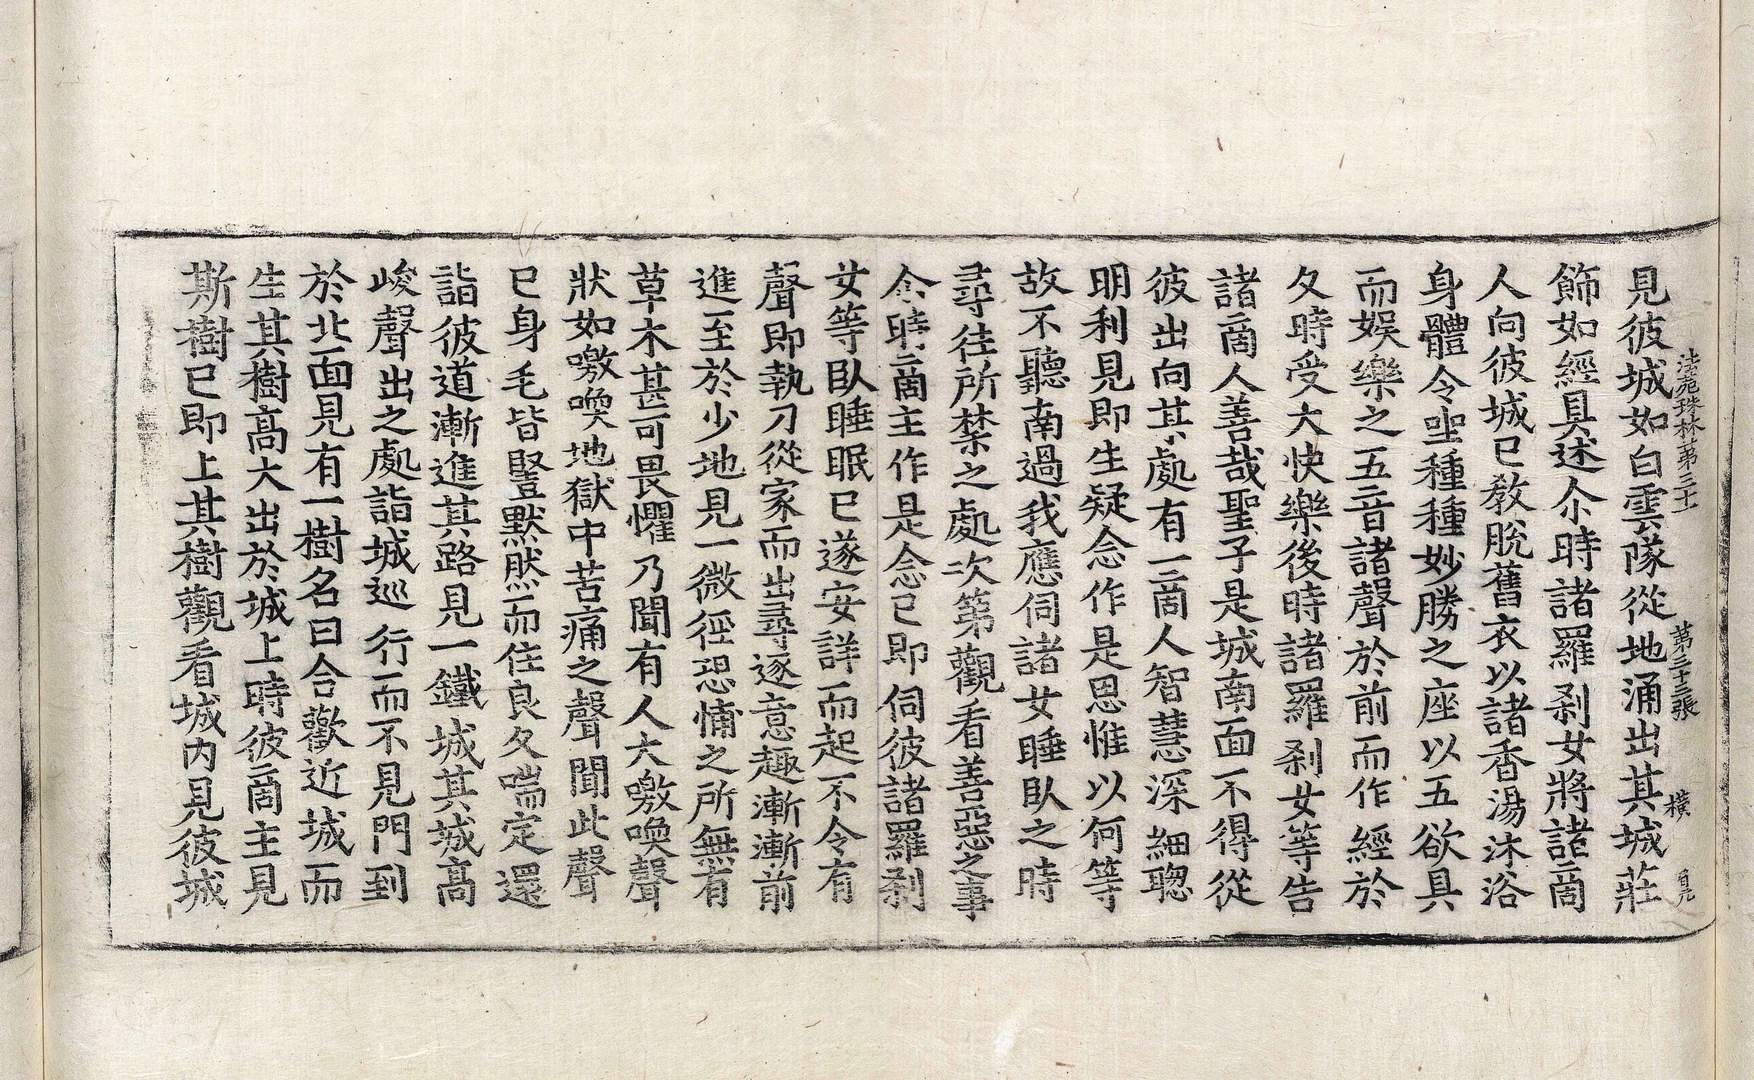 法苑珠林第三十一　第三十三張　横
見彼城如白雲隊從地涌出其城莊
飾如經具述尒時諸羅剎女將諸啇
人向彼城已教脫舊衣以諸香湯沐浴
身體令坐種種妙勝之座以五欲具
而娛樂之五音諸聲於前而作經於
久時受大快樂後時諸羅剎女等告
諸啇人善哉聖子是城南面不得從
彼出向其處有一啇人智慧深細聰
明利見即生疑念作是思惟以何等
故不聽南過我應伺諸女睡臥之時
尋往所禁之處次第觀看善惡之事
尒時啇主作是念已即伺彼諸羅剎
女等臥睡眠已遂安詳而起不令有
聲即執刀從家而出尋逐意趣漸漸前
進至於少地見一微徑恐悑之所無有
草木甚可畏懼乃聞有人大噭喚聲
狀如噭喚地獄中苦痛之聲聞此聲
已身毛皆豎默然而住良久喘定還
詣彼道漸進其路見一鐵城其城高
峻聲出之處詣城巡行而不見門到
於北面見有一樹名曰合歡近城而
生其樹高大出於城上時彼啇主見
斯樹已即上其樹觀看城內見彼城